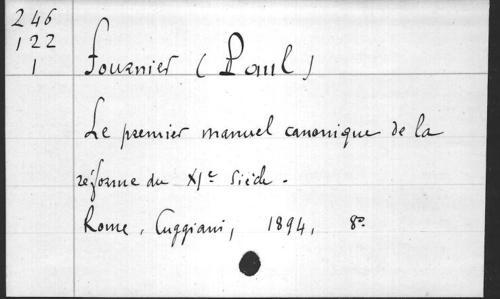 246
122
1
Fournier (Paul)
Le premier manuel canonique de la
réforme du XIe siècle.
Rome, Cuggiani, 1894, 8o.